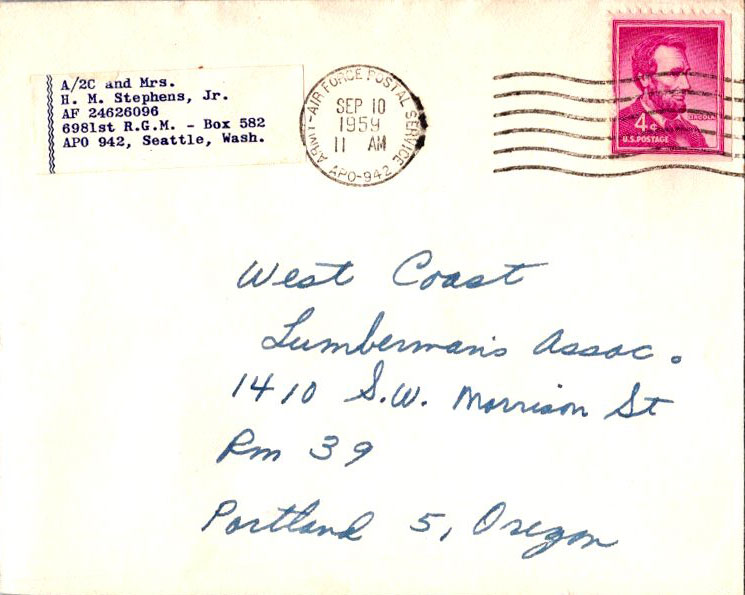 A/2C and Mrs.
H. M. Stephens, Jr.
AF 24626096
6981st R.G.M. - Box 582
APO 942, Seattle, Wash.
ARMY-AIR FORCE POSTAL SERVICE
SEP 10
1959
11 AM
APO-942
LINCOLN
4¢
U.S. POSTAGE
West Coast
Lumberman's Assoc.
1410 S.W. Morrison St
Rm 39
Portland 5, Oregon